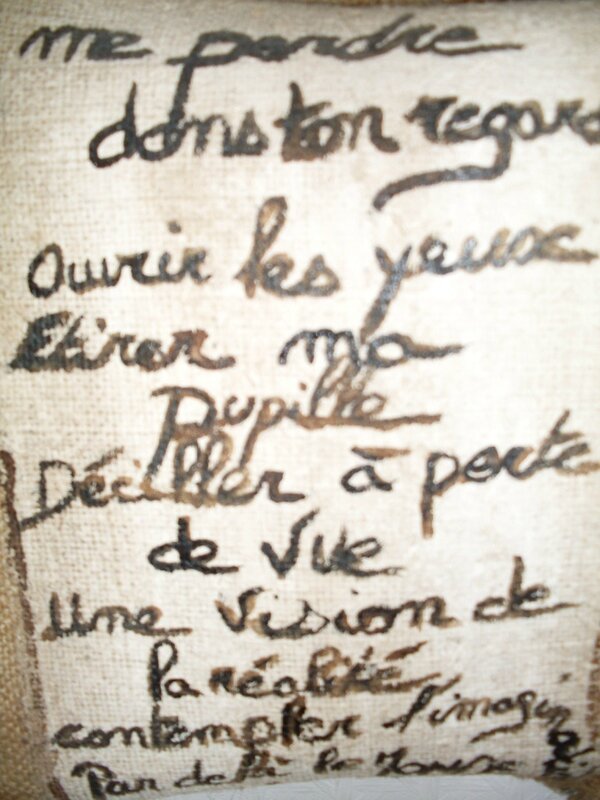 me perdre
dans ton regard
Ouvrir les yeux
Etirer ma
pupille
Déciller à perte
de vue
Une vision de
la réalité
contempler l'imagin
Par delà le